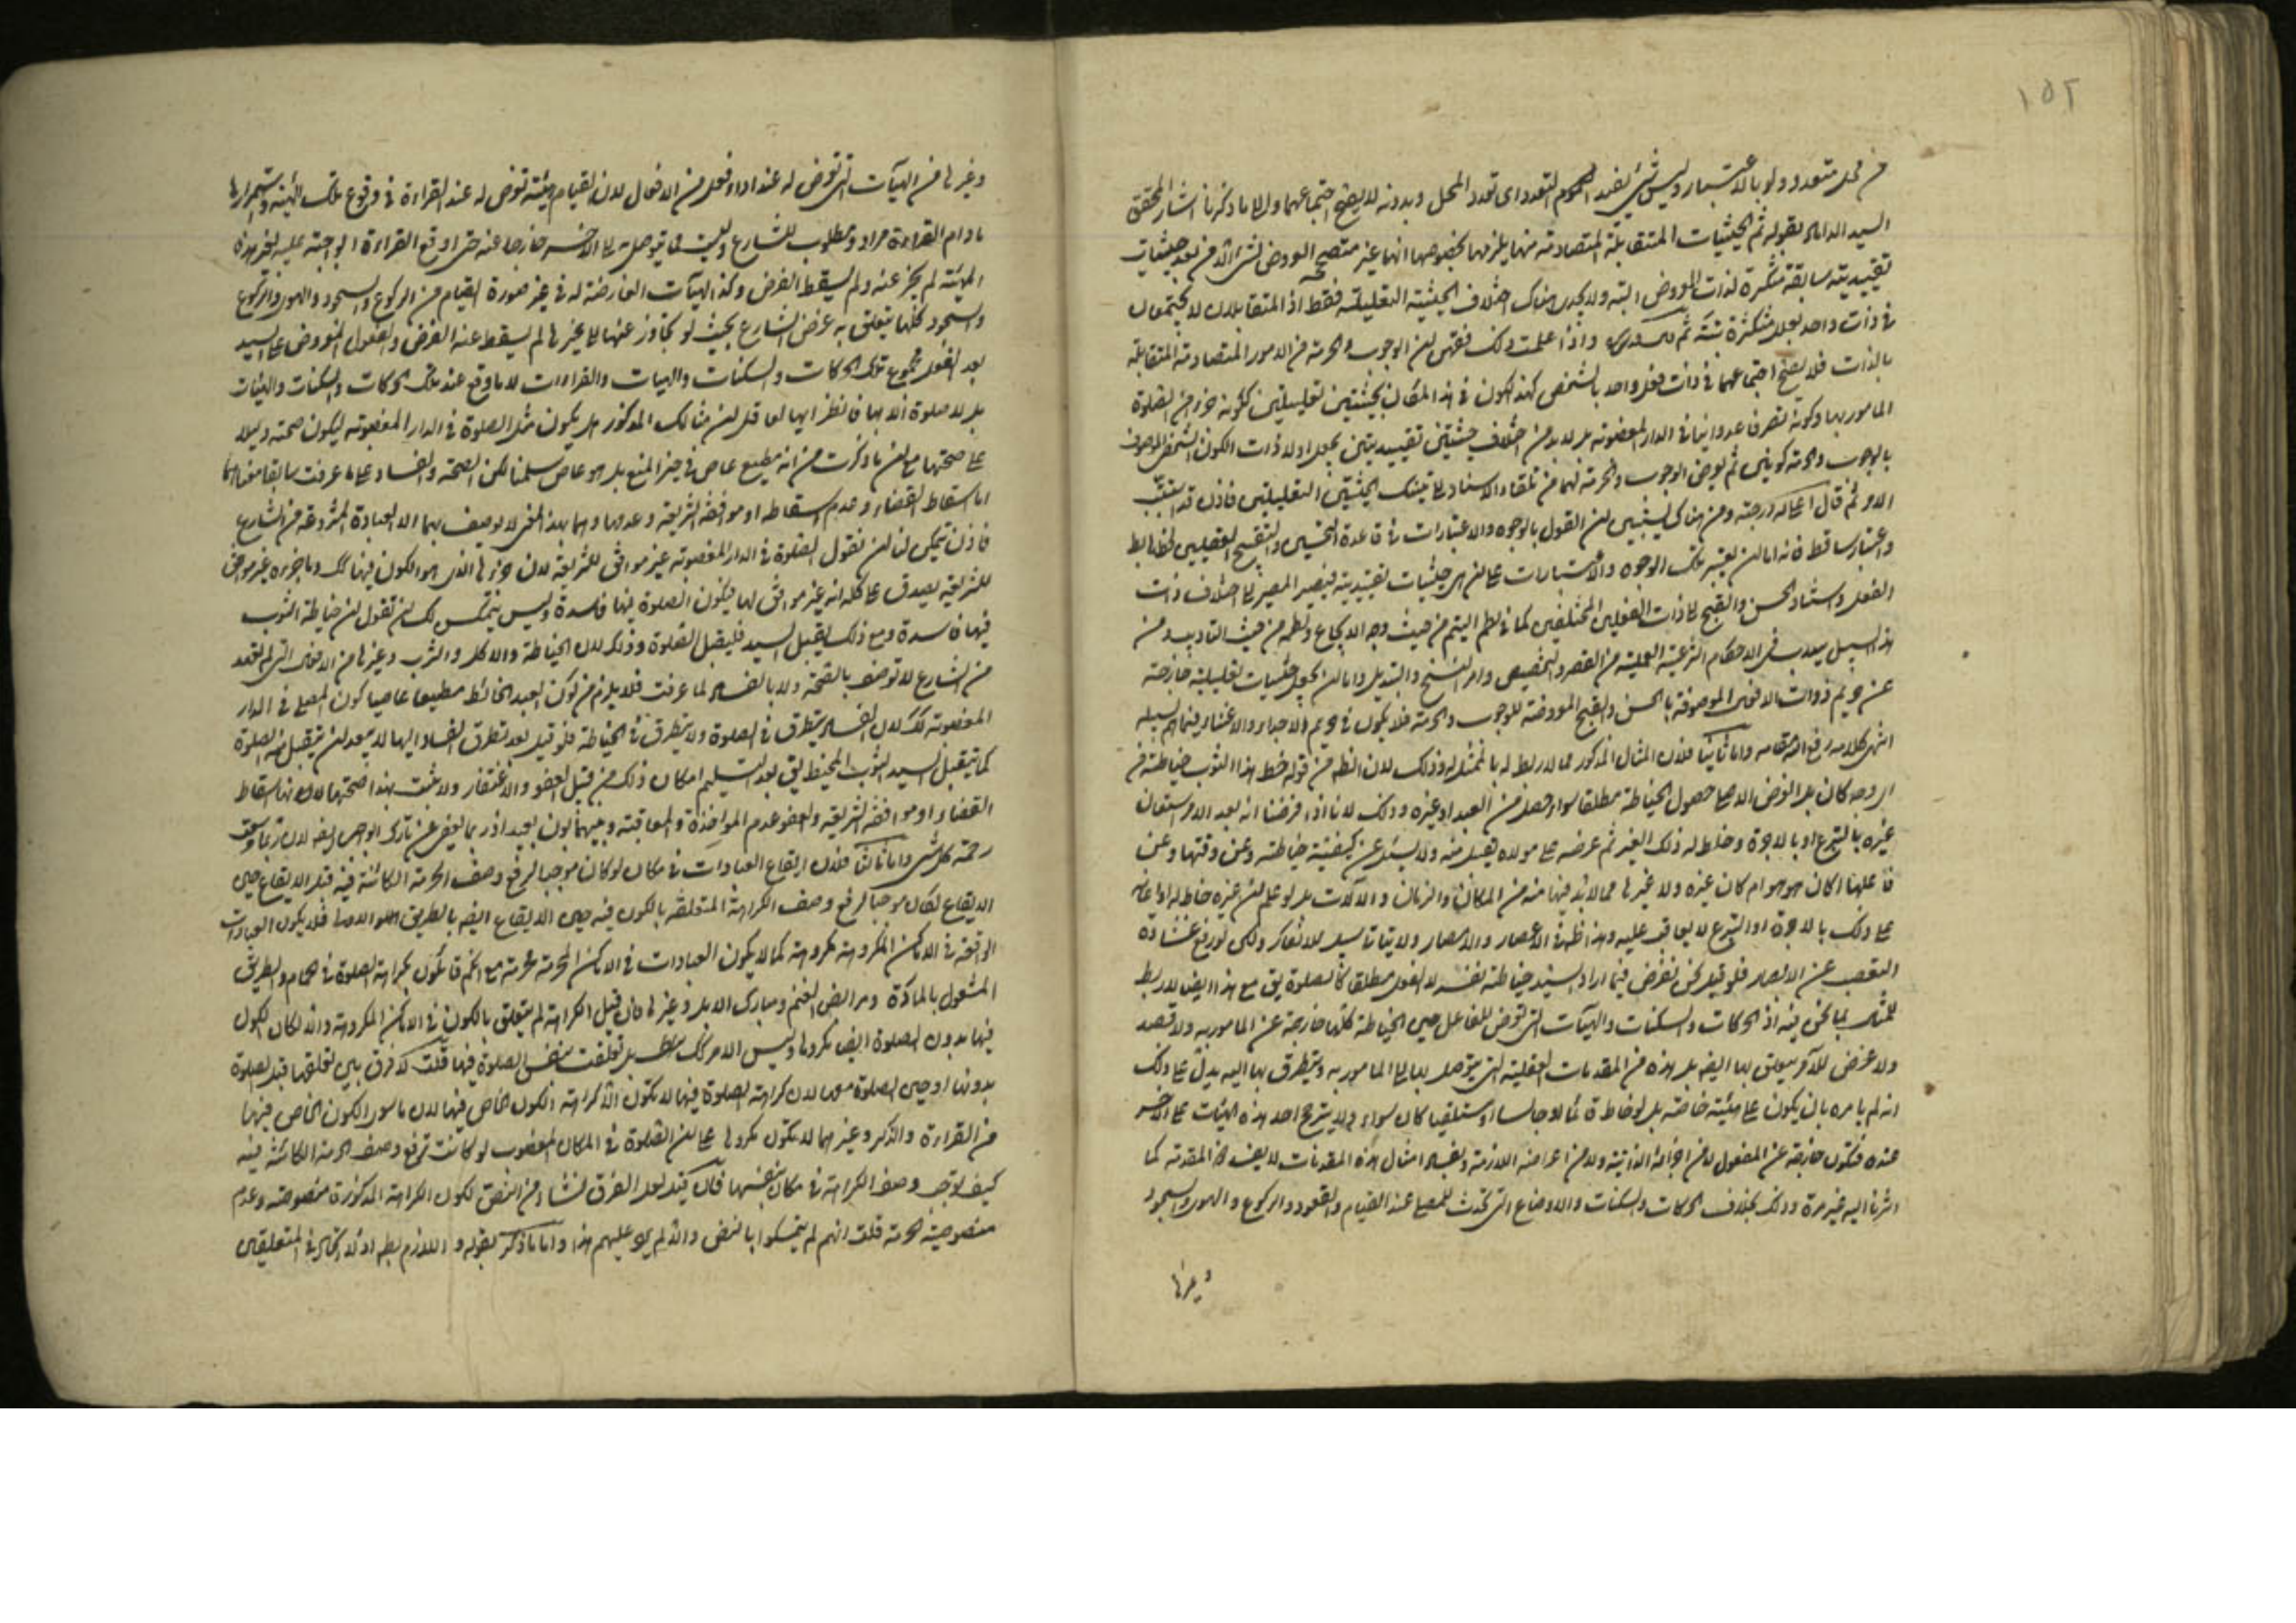 ١٥٢
من محل متعدد ولو بالاعتبار وليس شئ يفيد التعدد اى تعدد المحل وبدونه لا يصح اجتماعهما والى ما ذكرنا اشار المحقق
السيد الداماد بقوله ثم الحيثيات المتقابلة المتصادمة منها يلزمها بخصوصها انها غير متصحح العروض لشئ الا من بعد حيثيات
تقييدية سابقة مكثرة لذات المعروض البتة ولا يجدى هناك اختلاف الحيثية التعليلية فقط اذ المتقابلان لا يجتمعان
فى ذات واحد بعلل متكثرة واذا علمت ذلك فقهت ان الوجوب والحرمة من الامور المتصادمة المتقابلة
بالذات فلا يصح اجتماعهما فى ذات فعل واحد بالشخص كهذا الكون فى هذا المكان بحيثيتين تعليليتين ككونه جزء من الصلوة
المأمور بها وكونه تصرفا عدوانيا فى الدار المغصوبة بل لا بد من اختلاف حيثيتين تقييديتين يجعل اولا ذات الكون الشخصى الموصوف
بالوجوب والحرمة كونين ثم يعرض الوجوب والحرمة لهما من تلقاء الاستناد الى تينك الحيثيتين التعليليتين فاذن قد استتب
الامر ثم قال اعلى الله درجته ومن هناك يستبين ان القول بالوجوه والاعتبارات فى قاعدة التحسين والتقبيح العقليين
واعتبار ساقط فانه اما ان يعتبر تلك الوجوه والاعتبارات على انها حيثيات تقييدية فيصير المصير الى اختلاف ذات
الفعل واستناد الحسن والقبح الى ذات الفعلين المختلفين كما فى لطم اليتيم من حيث وجه الايجاع ولطمه من حيث التاديب ومن
هذا السبيل فى الاحكام الشرعية العملية من القصر والتخصيص وامر النسخ والتبديل واما ان يجعل حيثيات تعليلية خارجة
عن حريم ذوات الافعال الموصوفة بالحسن والقبح المعروضة للوجوب والحرمة فلا يكون فى حريم الاجداء والاغناء فيما هم بسبيله
انتهى كلامه رفع الله مقامه واما ثانيا فلان المثال المذكور مما لا ربط له بالممثل له وذلك لان الظ من قوله خط هذا الثوب خياطته من
اى وجه كان بل الغرض الاصلى حصول الخياطة مطلقا سواء حصل من العبد او غيره وذلك لانا اذا فرضنا انه بعد الامر استعان
غيره بالتبرع او بالاجرة وخاط له ذلك الغير ثم عرضه على مولاه يقبله منه ولا يسئل عن كيفية خياطته وعن وقتها وعن
فاعلها اكان هو هو ام كان غيره ولا غيرها مما لا بد فيها منه من المكان والزمان والآلات بل لو علم ان غيره خاط له او اعانه
على ذلك بالاجرة او التبرع لا يعاقب عليه وهذا ظ فى الاعصار والامصار ولا يتاتى سبيل للانكار ولكن لو رفع غشاوة
التعصب عن الابصار فلو قيل نحن نفرض فيما اراد السيد خياطة نفسه لا الفعل مطلقا كالصلوة يق مع هذا ايض لا ربط
للمثل بما نحن فيه اذ الحركات والسكنات والهيآت التى تعرض للفاعل حين الخياطة كلها خارجة عن المامور به ولا قصد
ولا غرض للآمر يتعلق بها ايض بل هذه من المقدمات العقلية التى يتوصل بها الى المامور به ويتطرق بها اليه يدل على ذلك
انه لم يامره بان يكون على هيئة خاصة بل لو خاط قائما او جالسا او مستلقيا كان سواء ولا يترجح احد هذه الهيئات على الاخر
عنده فتكون خارجة عن المفعول لا من اجزائه الذاتية ولا من اعراضه اللازمة وبفساد امثال هذه المقدمات لا يفسد ذا المقدمة كما
اشرنا اليه غير مرة وذلك بخلاف الحركات والسكنات والاوضاع التى تحدث للمصلى عند القيام والقعود والركوع والهوى والسجود
وغيرها
وغيرها من الهيآت التى تعرض له عند اداء فعل من الافعال لان القيام هيئة تعرض له عند القراءة فى وقوع تلك الهيئة واستمرارها
ما دام القراءة مراد ومطلوب للشارع وليست مما يتوصل بها الى الاخر خارجا عنه حتى لو وقع القراءة الواجبة عليه بغير هذه
الهيئة لم يجز عنه ولم يسقط الفرض وكذا الهيآت العارضة له فى غير صورة القيام من الركوع والسجود والهوى والركوع
والسجود كلها يتعلق به غرض الشارع بحيث لو تجاوز عنها الى غيرها لم يسقط عنه الفرض والفعل المفروض على السيد
بعد الفعل مجموع تلك الحركات والسكنات والهيات والقراءات لا ما وقع عند تلك الحركات والسكنات والهيئات
بل لا صلوة الا بها فانظر ايها العاقل ان مثالك المذكور هل يكون مثل الصلوة فى الدار المغصوبة ليكون صحته دليلا
على صحتها مع ان ما ذكرت من انه مطيع عاص فى حيز المنع بل هو عاص سلمنا لكن الصحة والفساد على ما عرفت سابقا معناهما
اما اسقاط القضاء وعدم اسقاطه او موافقة الشريعة وعدمها وهما بهذا المعنى لا يوصف بهما الا العبادة المشروعة من الشارع
فاذن يتمكن لنا ان نقول الصلوة فى الدار المغصوبة غير موافق للشريعة لان جزءها الذى هو الكون فيها كك وما جزءه غير موافق
للشريعة يصدق على كله انه غير موافق لها فيكون الصلوة فيها فاسدة وليس يتمكن لك ان تقول ان خياطة الثوب
فيها فاسدة ومع ذلك يقبل السيد فليقبل الصلوة وذلك لان الخياطة والاكل والشرب وغيرها من الافعال التى لم تعهد
من الشارع لا توصف بالصحة ولا بالفساد لما عرفت فلا يلزم من كون العبد الخائط مطيعا عاصيا كون المصلى فى الدار
المغصوبة كك لان الفساد يتطرق فى الصلوة ولا يتطرق فى الخياطة فلو قيل بعد تطرق الفساد اليها لا يبعد ان يتقبل الله الصلوة
كما يتقبل السيد الثوب المخيط يق بعد التسليم امكان ذلك من قبيل العفو والاغتفار ولا يثبت بهذا صحتها لانها اسقاط
القضاء او موافقة الشريعة والعفو عدم المؤاخذة والمعاقبة وبينهما بون بعيد اذ ربما يعفى عن تارك الواجب ايض لان ربنا وسعت
رحمته كل شئ واما ثالثا فلان ايقاع العبادات فى مكان لو كان موجبا لرفع وصف الحرمة الكائنة فيه قبل الايقاع حين
الايقاع لكان موجبا لرفع وصف الكراهة المتعلقة بالكون فيه حين الايقاع ايض بالطريق الاولى فلا يكون العبادات
الواقعة فى الاماكن المكروهة مكروهة كما لا يكون العبادات فى الاماكن المحرمة محرمة مع انكم قائلون بكراهة الصلوة فى الحمام والطريق
المشغول بالمارة ومرابض الغنم ومبارك الابل وغيرها فان قيل الكراهة لم يتعلق بالكون فى الاماكن المكروهة والا لكان الكون
فيها بدون الصلوة ايض مكروها وليس الامر كك بل تعلقت بنفس الصلوة فيها قلت لا فرق بين تعلقها قبل الصلوة
بدونها او حين الصلوة معها لان كراهة الصلوة فيها لا تكون الا كراهة الكون الخاص فيها لان ما سوى الكون الخاص فيها
من القراءة والذكر وغيرهما لا يكون مكروها على ان الصلوة فى المكان المغصوب لو كانت ترفع وصف الحرمة الكائنة فيه
كيف توجب وصف الكراهة فى مكان بنفسها فان قيل لعل الفرق نشاء من النص لكون الكراهة المذكورة منصوصة وعدم
منصوصية الحرمة قلت انهم لم يتمسكوا بالنص والا لم يرد عليهم هذا واما ما ذكر بقوله واللازم بط اذ لا اتحاد فى المتعلقين